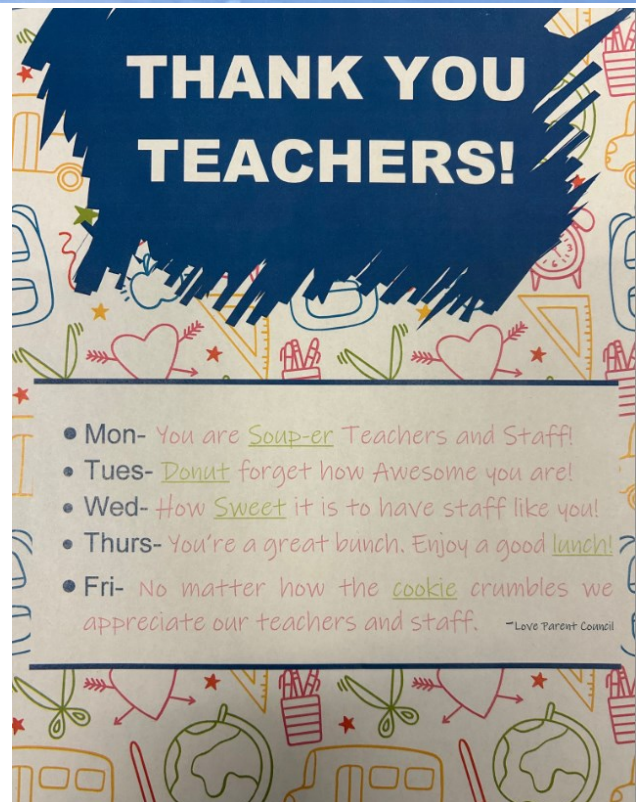 THANK YOU
TEACHERS!
• Mon- You are Soup-er Teachers and Staff!
• Tues- Donut forget how Awesome you are!
• Wed- How Sweet it is to have staff like you!
• Thurs- You're a great bunch. Enjoy a good lunch!
• Fri- No matter how the cookie crumbles we
appreciate our teachers and staff. -Love Parent Council